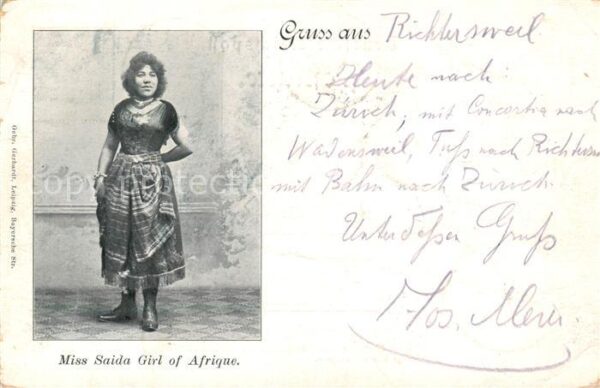 Gruss aus Richtersweil
Heute nach
Zürich, mit Concordia nach
Wädensweil, Fuß nach Richtersw
mit Bahn nach Zürich.
Unterdeßen Gruß
Jos.
Gebr. Gerhardt, Leipzig, Bayersche Str.
Miss Saida Girl of Afrique.